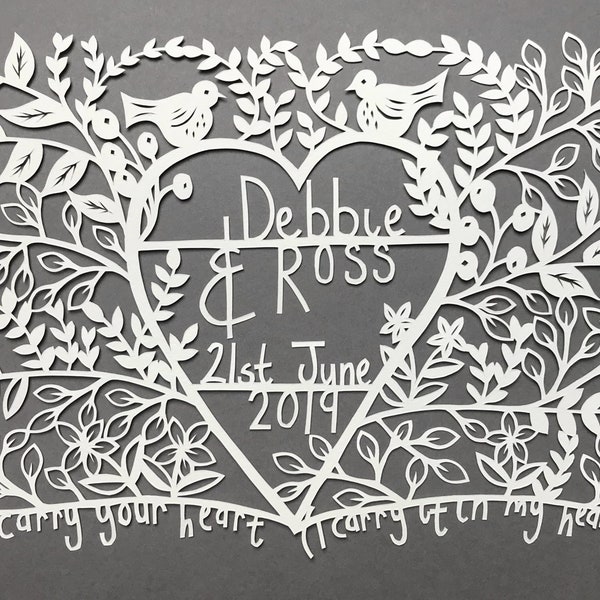 Debbie
& Ross
21st June
2019
carry your heart (I carry it in my